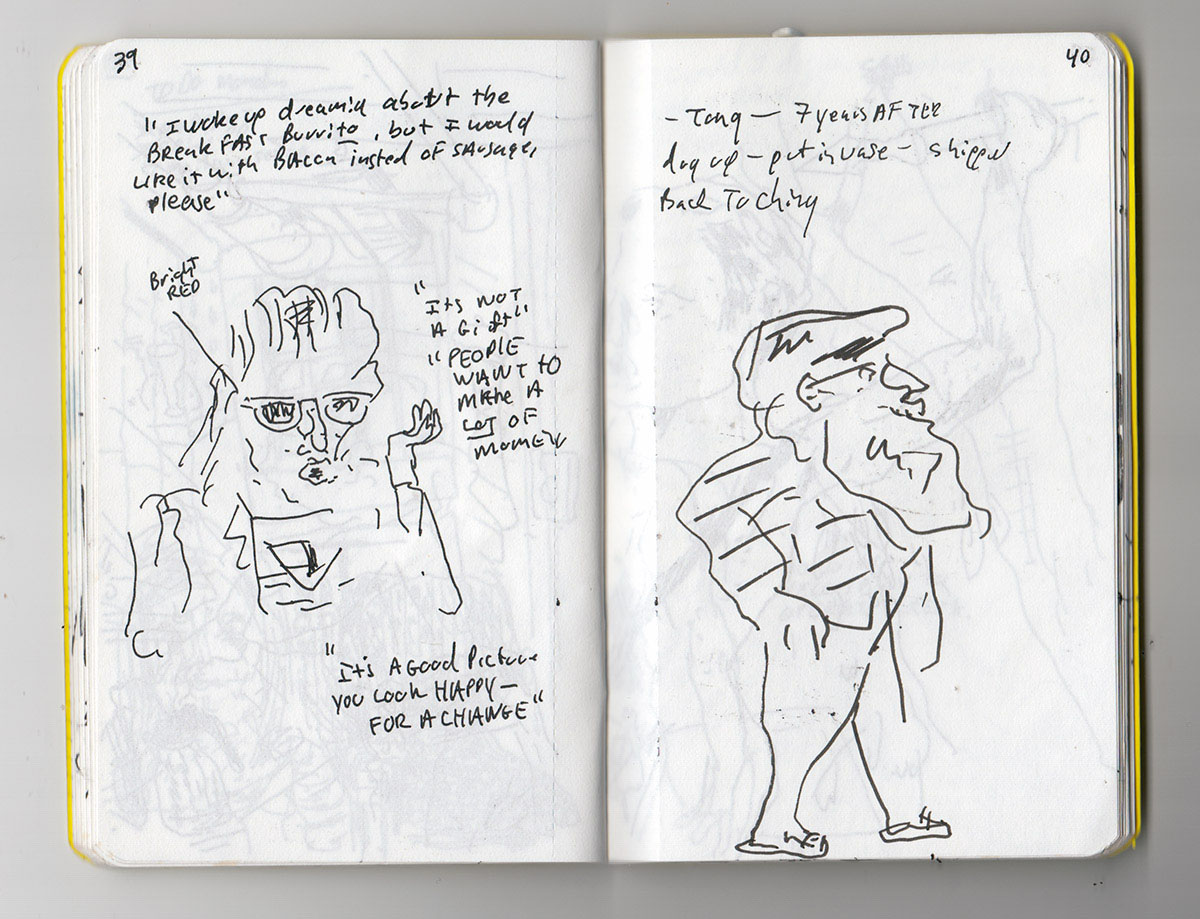 39
"I woke up dreamin about the
BreakFAST Burrito, but I would
Like it with BACon insted OF SAusage,
please"
Bright
RED
"Its NOT
A Gift"
"PEOPLE
WANT TO
MAke A
LOT OF
"It's A Good Picture
You Look HAPPY —
FOR A CHANGE"
40
- Tong — 7 years AFTER
dug up — put in vase — shipped
Back To China